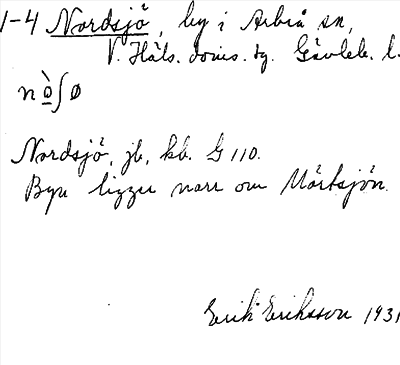 1-4 Nordsjö, by i Arbrå sn,
V. Häls. doms. tg. Gävleb. l.
n ò̲ ʃ ø
Nordsjö, jb, kb. G 110.
Byn ligger norr om Mörtsjön.
Erik Eriksson 1931